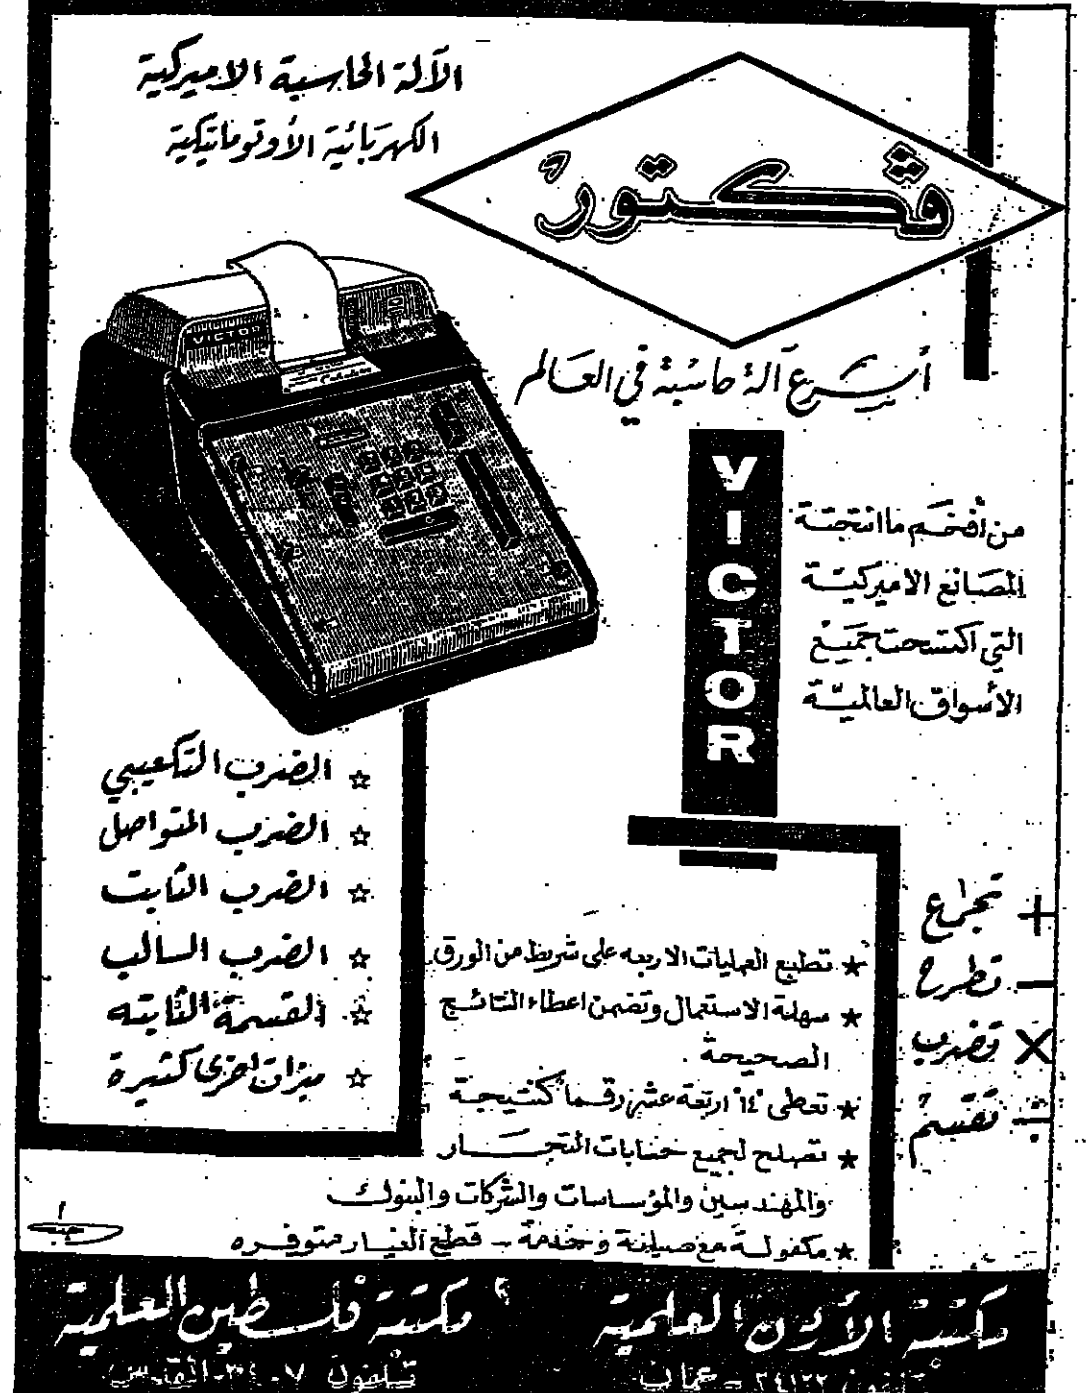 الآلة الحاسبة الاميركية
الكهربائية الأوتوماتيكية
ڤكتور
VICTOR
أسرع آلة حاسبة في العالم
VICTOR
من أفخم ما انتجتة
المصانع الاميركية
التي اكتسحت جميع
الأسواق العالمية
☆ الضرب التكعيبي
☆ الضرب المتواصل
☆ الضرب الثابت
☆ الضرب السالب
☆ القسمة الثابته
☆ ميزات اخرى كثيرة
+ تجمع
− تطرح
× تضرب
÷ تقسم
★ تطبع العمليات الاربعه على شريط من الورق
★ سهلة الاستعمال وتضمن اعطاء النتائج
الصحيحة .
★ تعطي "١٤" اربعة عشر رقماً كنتيجة
★ تصلح لجميع حسابات التجار
والمهندسين والمؤسسات والشركات والبنوك
★ مكفولة مع صيانة وخدمة - قطع الغيار متوفره
مكتبة الأردن العلمية
تلفون ٢٤١٢٢ - عمان
مكتبة فلسطين العلمية
تلفون القدس